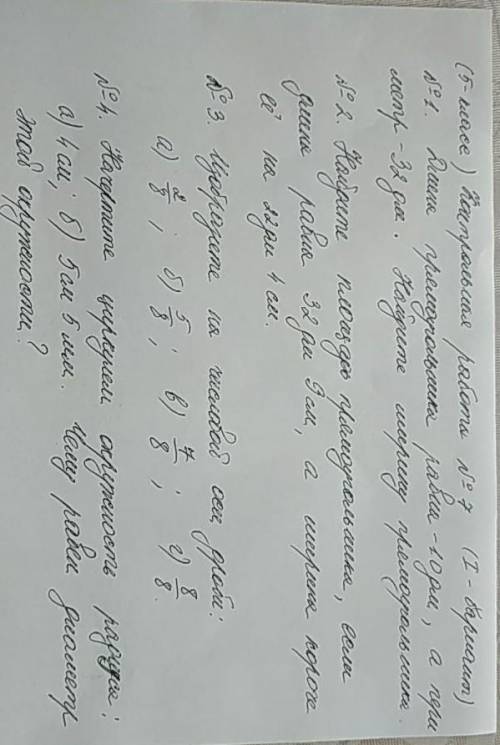 (5-класс) Контрольная работа № 7 (I-вариант)
№1. Длина прямоугольника равна - 10 дм, а пери
метр - 32 дм. Найдите ширину прямоугольника.
№2. Найдите площадь прямоугольника, если
длина равна 32 дм 9 см, а ширина короче
её на 22 дм 4 см.
№3. Изобразите на числовой оси дроби:
а) 2/8; б) 5/8; в) 7/8; г) 8/8.
№4. Начертите циркулем окружность радиуса:
а) 4 см; б) 5 см 5 мм. Чему равен диаметр
этой окружности?